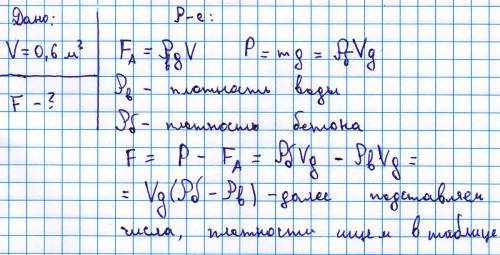 Дано:
Р-е:
V = 0,6 м³
F - ?
F_A = ρ_в g V P = mg = ρ_б V g
ρ_в - плотность воды
ρ_б - плотность бетона
F = P - F_A = ρ_б V g - ρ_в V g =
= V g (ρ_б - ρ_в) - далее подставляем
числа, плотности ищем в таблице